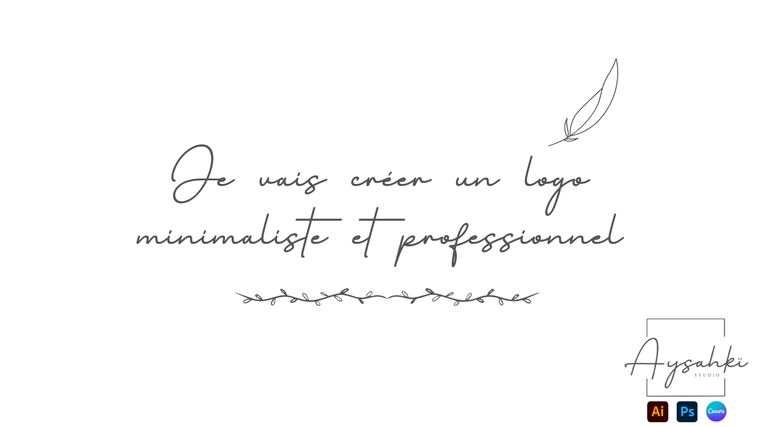 Je vais créer un logo
minimaliste et professionnel
Aysahkï
STUDIO
Ai Ps Canva